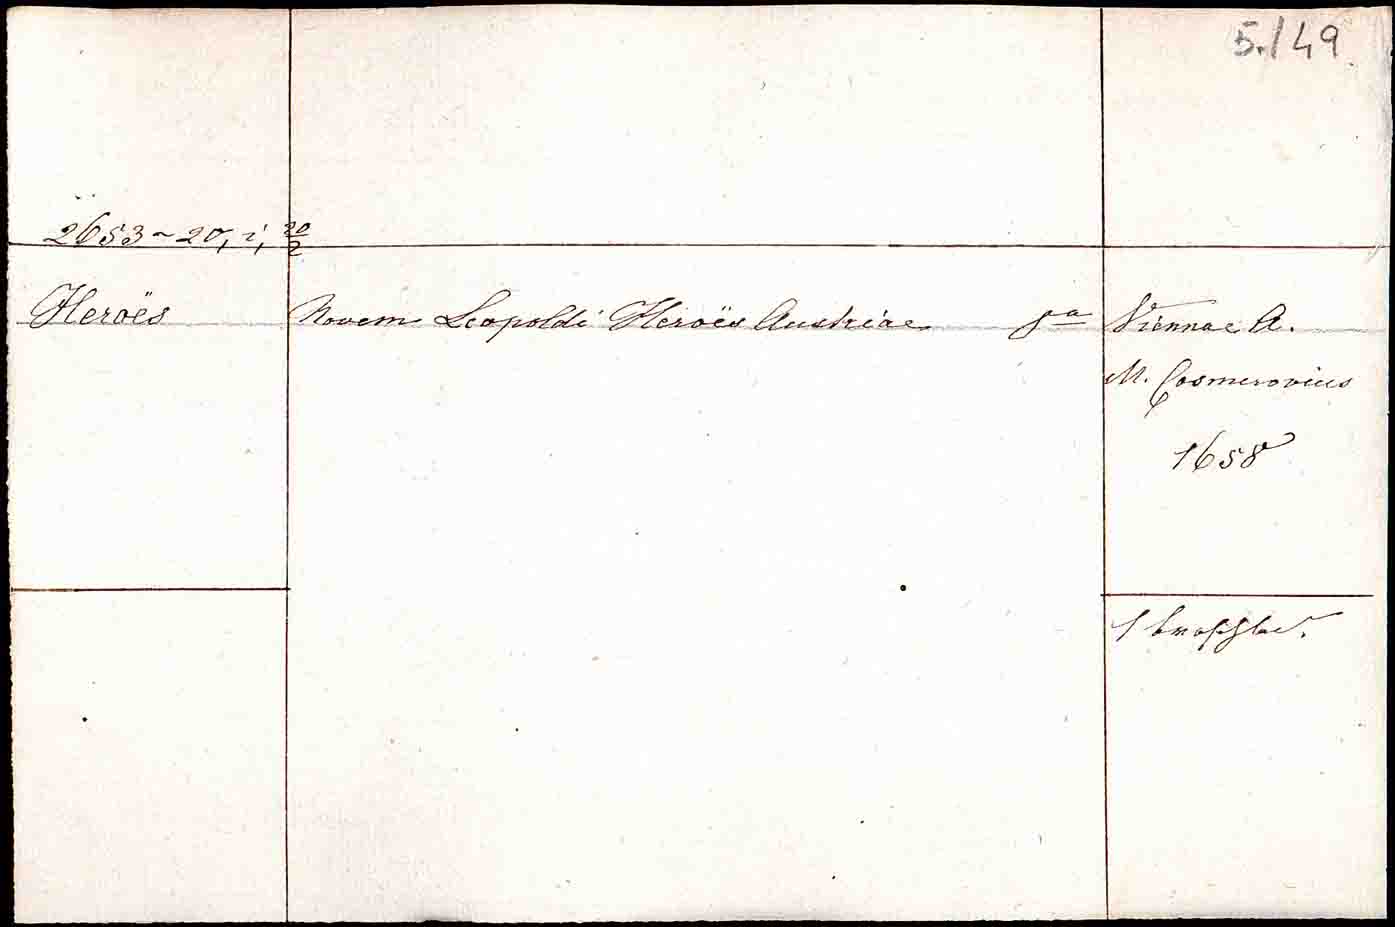 5./49
2653 ~ 20, i, 20/2
Heroës Novem Leopoldi Heroës Austriae Viennae A.
M. Cosmerovius
1658
1